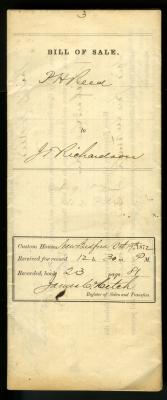 3
BILL OF SALE.
F. H. Reed
to
J. T. Richardson
Custom House, New Bedford Oct 9, 1872
Received for record 12 h 30 m P M.
Recorded, book 23 page 81
James C. Hitch
Register of Sales and Transfers.